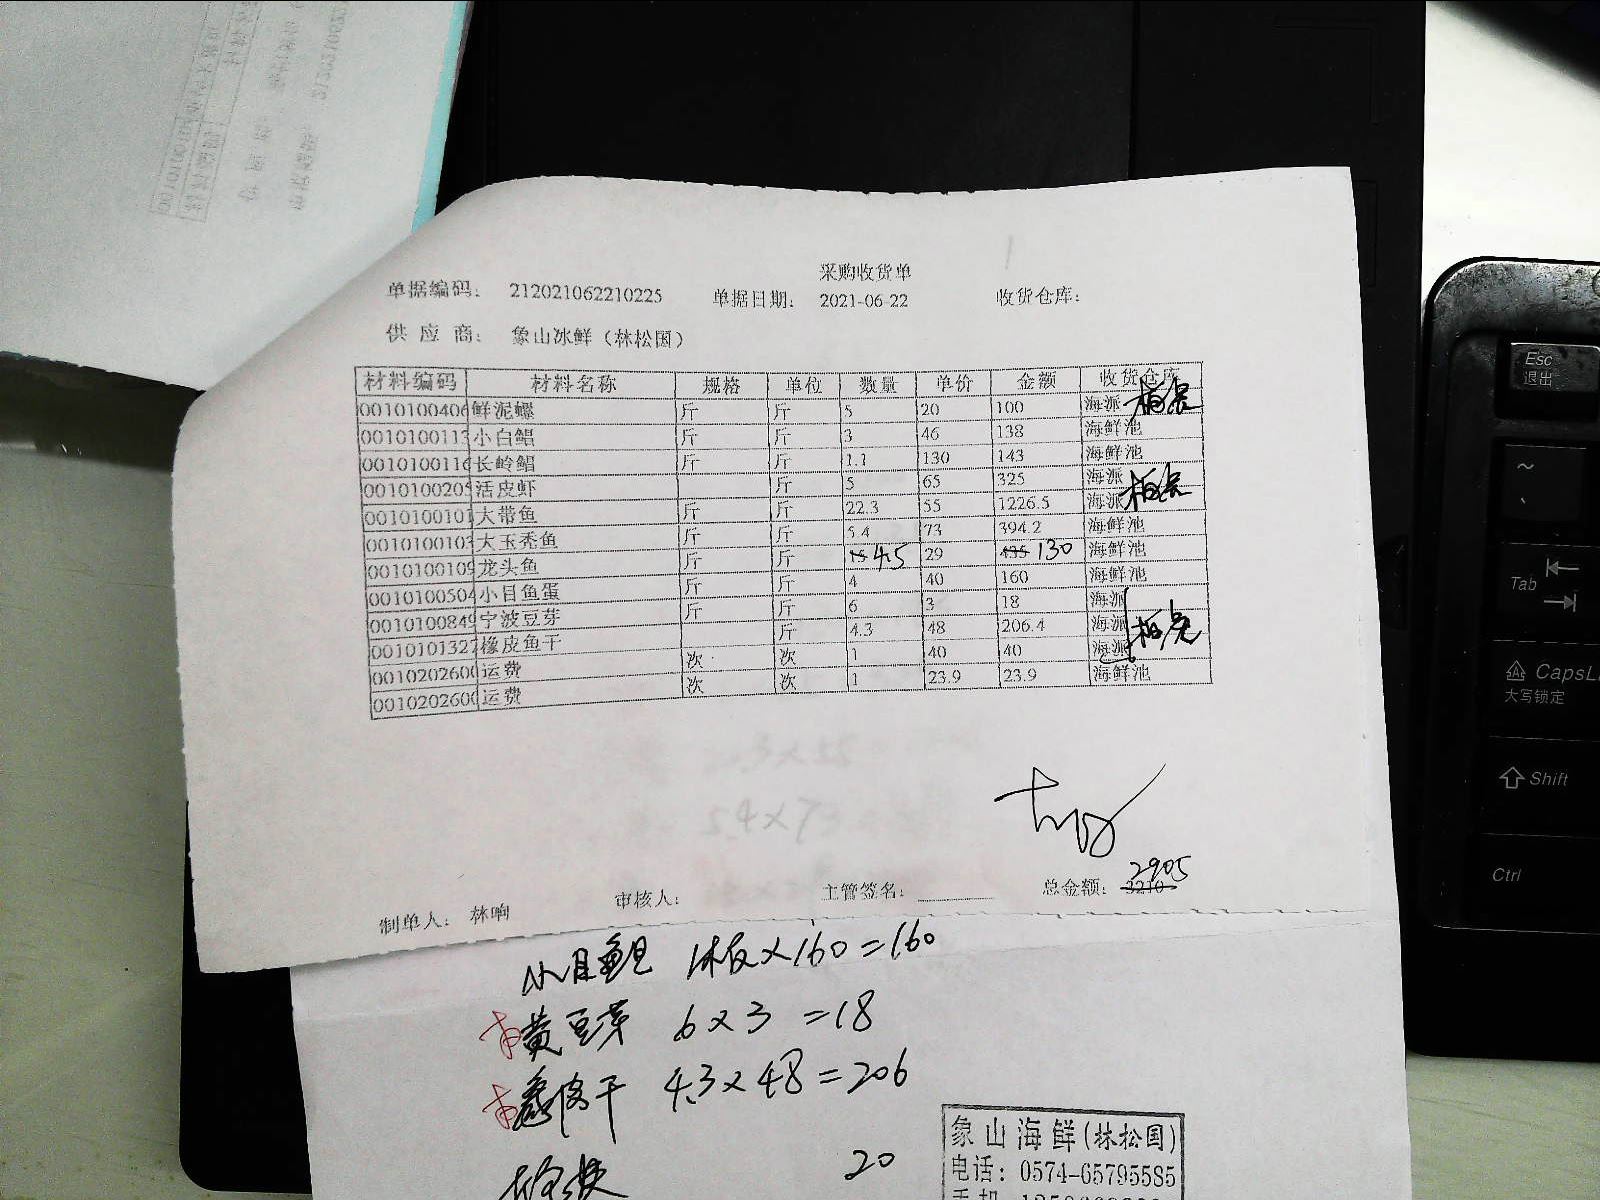 采购收货单
单据编码: 212021062210225 单据日期: 2021-06-22 收货仓库:
供 应 商: 象山冰鲜（林松国）
材料编码 材料名称 规格 单位 数量 单价 金额 收货仓库
0010100406 鲜泥螺 斤 斤 5 20 100 海派
0010100113 小白鲳 斤 斤 3 46 138 海鲜池
0010100116 长岭鲳 斤 斤 1.1 130 143 海鲜池
0010100205 活皮虾 斤 5 65 325 海派
0010100101 大带鱼 斤 斤 22.3 55 1226.5 海派
0010100103 大玉秃鱼 斤 斤 5.4 73 394.2 海鲜池
0010100109 龙头鱼 斤 斤 15 4.5 29 435 130 海鲜池
0010100504 小目鱼蛋 斤 斤 4 40 160 海鲜池
0010100849 宁波豆芽 斤 斤 6 3 18 海派
0010101327 橡皮鱼干 斤 4.3 48 206.4 海派
0010202600 运费 次 次 1 40 40 海派
0010202600 运费 次 次 1 23.9 23.9 海鲜池
2905
制单人: 林响 审核人: 主管签名: 总金额: 3210
1板×160=160
黄豆芽 6×3=18
干 4.3×48=206
20
象山海鲜(林松国)
电话: 0574-65795585
Esc
退出
~
Tab
CapsL
大写锁定
Shift
Ctrl